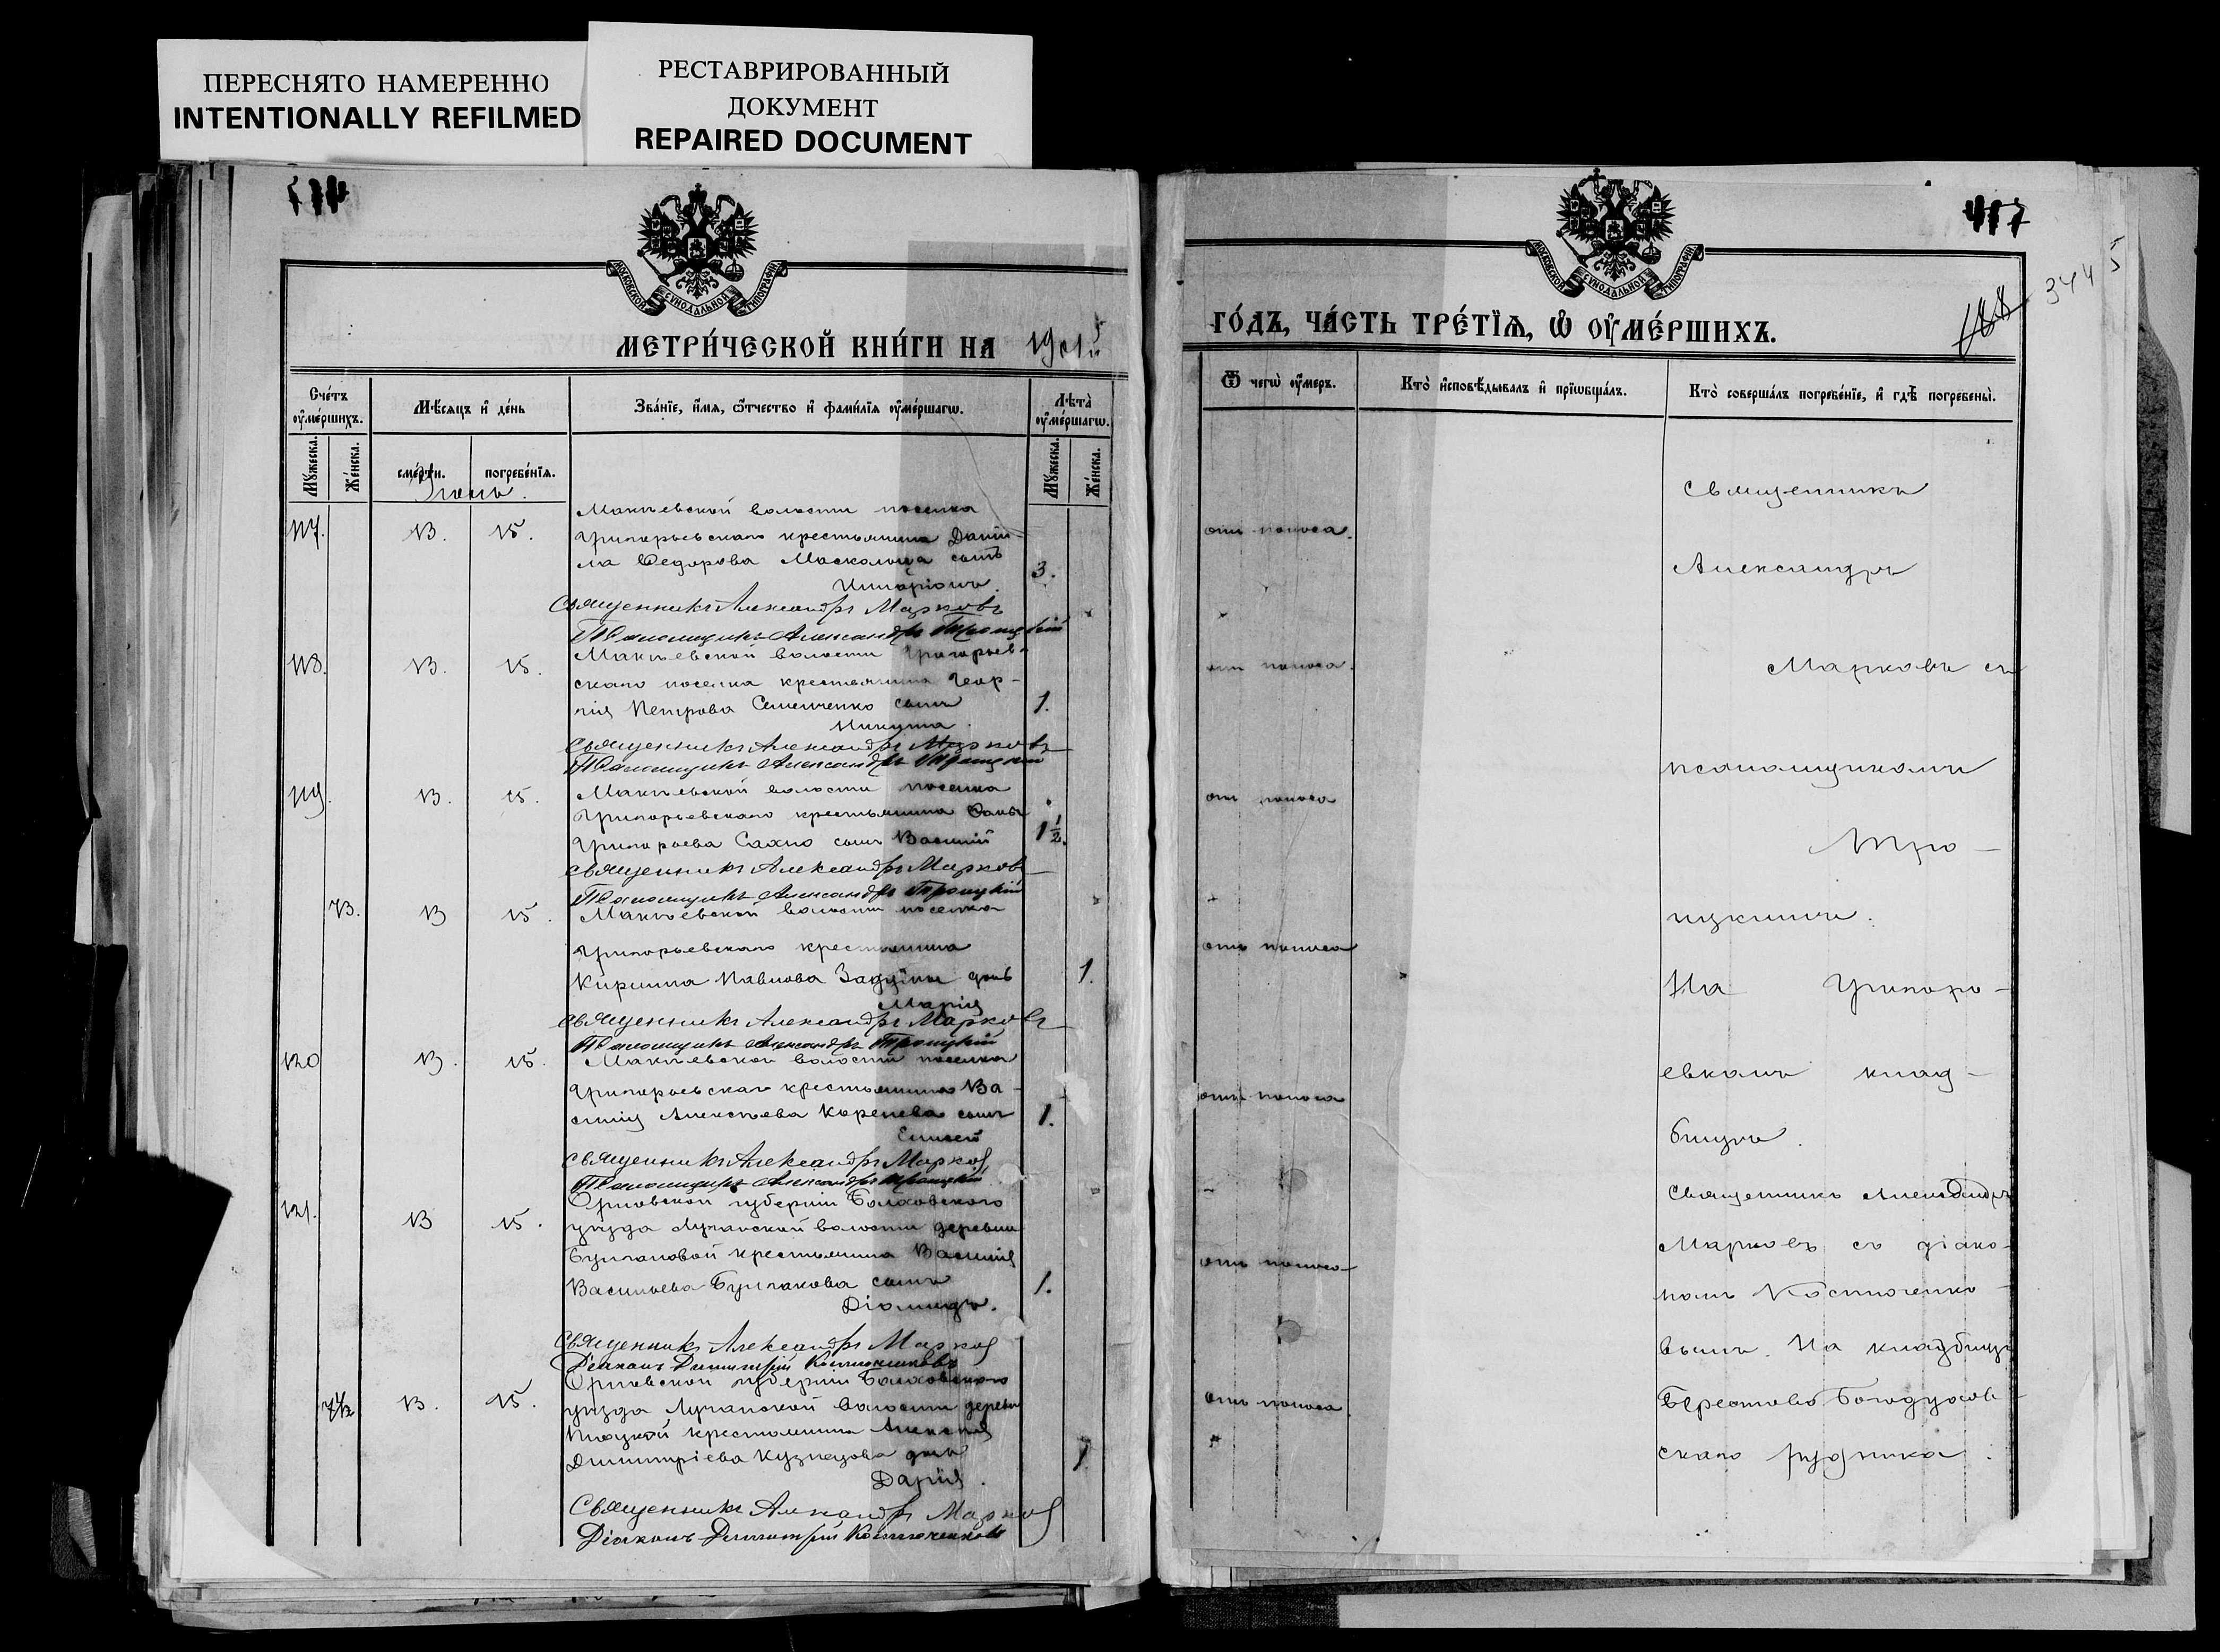 ПЕРЕСНЯТО НАМЕРЕННО
INTENTIONALLY REFILMED
РЕСТАВРИРОВАННЫЙ
ДОКУМЕНТ
REPAIRED DOCUMENT
МОСКОВСКОЙ СѴНОДАЛЬНОЙ ТИПОГРАФІИ
МЕТРИ́ЧЕСКОЙ КНИ́ГИ НА
Сче́тъ ᲂу҆ме́ршихъ.
Мꙋ́жеска.
Же́нска.
Мѣ́сяцъ и҆ де́нь
сме́рти.
погребе́нїѧ.
Зва́нїе, и҆́мѧ, ѻ҆́тчество и҆ фами́лїѧ ᲂу҆ме́ршагѡ.
Лѣ́та ᲂу҆ме́ршагѡ.
Мꙋ́жеска.
Же́нска.
Іюль.
117.
13.
15.
Макѣевской волости поселка
Григорьевскаго крестьянина Дании-
ла Ѳедорова сынъ
Илларіонъ.
3.
Священникъ Александръ Марковъ
Псаломщикъ Александръ Троицкій
118.
13.
15.
Макѣевской волости Григорьев-
скаго поселка крестьянина Геор-
гія Петрова Семенченко сынъ
Никита.
1.
Священникъ Александръ Марковъ
Псаломщикъ Александръ Троицкій
119.
13.
15.
Макѣевской волости поселка
Григорьевскаго крестьянина
Григорьева Сахно сынъ Василій
1 1/2.
Священникъ Александръ Марковъ
Псаломщикъ Александръ Троицкій
73.
13
15.
Макѣевской волости поселка
Григорьевскаго крестьянина
Кирилла Павлова дочь
Марія
1.
Священникъ Александръ Марковъ
Псаломщикъ Александръ Троицкій
120
13.
15.
Макѣевской волости поселка
Григорьевскаго крестьянина Ва-
силія Алексѣева Коренева сынъ
Елисей
1.
Священникъ Александръ Марковъ
Псаломщикъ Александръ Троицкій
121.
13
15.
Орловской губерніи Болховского
уѣзда Луганской волости деревни
Булгаковой крестьянина Василія
Васильева Булгакова сынъ
Діомидъ.
1.
Священникъ Александръ Марковъ
Діаконъ Димитрій Костюченковъ
74
13.
15.
Орловской губерніи Болховского
уѣзда Луганской волости деревни
крестьянина Алексѣя
Димитріева Кузнецова дочь
Дарія.
1.
Священникъ Александръ Марковъ
Діаконъ Димитрій Костюченковъ
417
344
МОСКОВСКОЙ СѴНОДАЛЬНОЙ ТИПОГРАФІИ
ГО́ДЪ, ЧА́СТЬ ТРЕ́ТЇѦ, Ѡ҆ ОУ҆МЕ́РШИХЪ.
Ѿ чегѡ̀ ᲂу҆́меръ.
Кто̀ и҆сповѣ́дывалъ и҆ прїѡбща́лъ.
Кто̀ соверша́лъ погребе́нїе, и҆ гдѣ̀ погребены̀.
отъ поноса.
отъ поноса.
отъ поноса
отъ поноса
отъ поноса
отъ поноса
отъ поноса
Священникъ
Александръ
Марковъ съ
псаломщикомъ
Тро-
ицкимъ.
На Григорь-
евкомъ клад-
бищѣ.
Священникъ Александръ
Марковъ съ діако-
номъ Костюченко-
вымъ. На кладбищѣ
Берестово Богодухов-
скаго рудника.